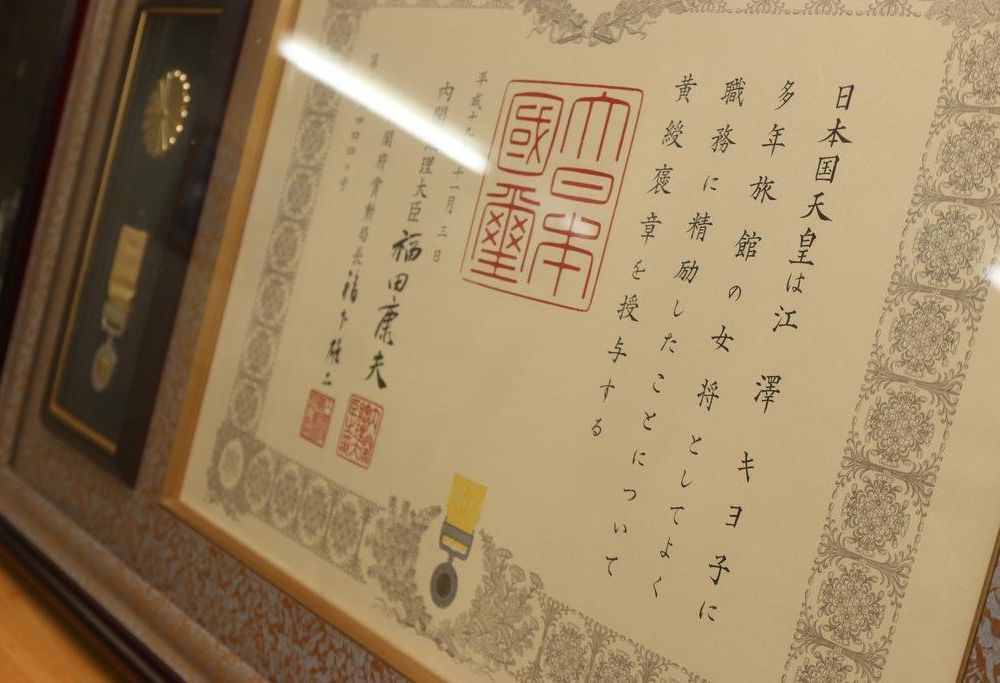 日本国天皇は江澤キヨ子に
多年旅館の女将としてよく
職務に精励したことについて
黄綬褒章を授与する
大日本國璽
平成十九 十一月三日
内閣 理大臣 福田康夫
閣府賞勲局長 福下雄二
第 号